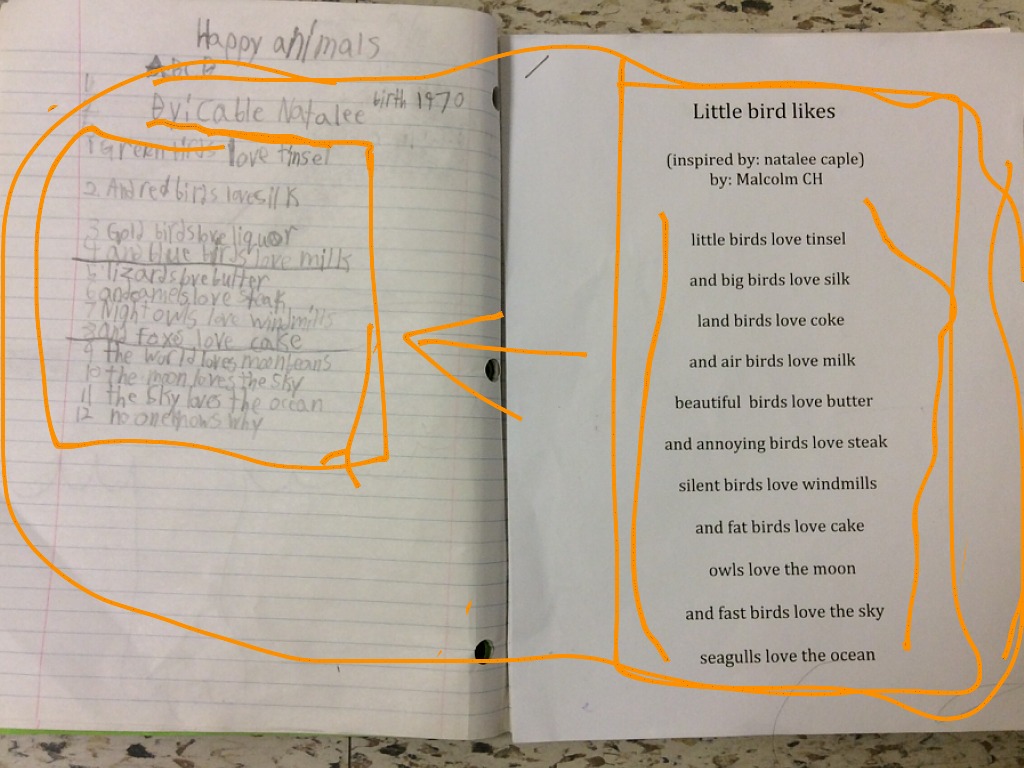 Happy animals
ABCB
By: Cable Natalee birth 1970
1 Green birds love tinsel
2. And red birds love silk
3 Gold birds love liquor
4 and blue birds love milks
5 lizards love butter
6 and camels love steak
7 Night owls love windmills
8 and foxs love cake
9 the world loves moonbeans
10 the moon loves the sky
11 the sky loves the ocean
12 no one knows why
Little bird likes
(inspired by: natalee caple)
by: Malcolm CH
little birds love tinsel
and big birds love silk
land birds love coke
and air birds love milk
beautiful birds love butter
and annoying birds love steak
silent birds love windmills
and fat birds love cake
owls love the moon
and fast birds love the sky
seagulls love the ocean